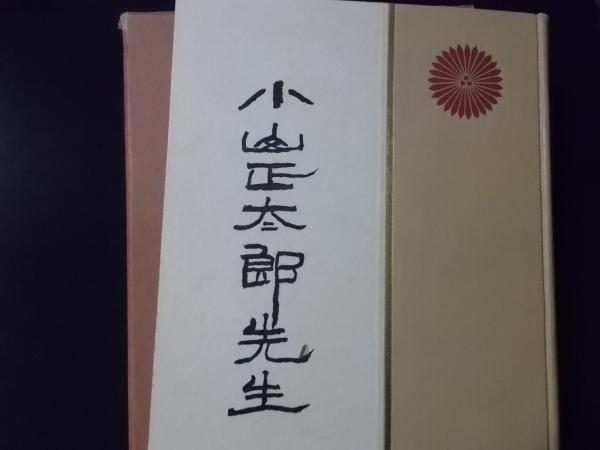 小山正太郎先生